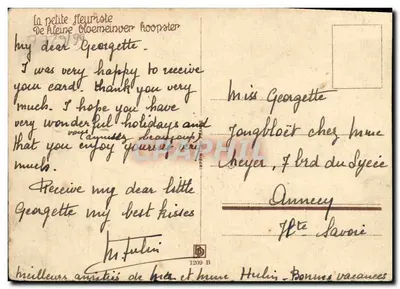 La petite fleuriste
De kleine bloemeinver koopster
my dear Georgette.
I was very happy to receive
your card. thank you very
much. I hope you have
very wonderful holidays and
vous amusez beaucoup
that you enjoy yourself
much.
Receive my dear little
Georgette my best kisses
M. Hulin
Miss Georgette
Jongbloët chez Mme
Meyer, 7 brd du Lycée
Annecy
Hte Savoie
1209 B
meilleures amitiés de Mr et Mme Hulin - Bonnes vacances